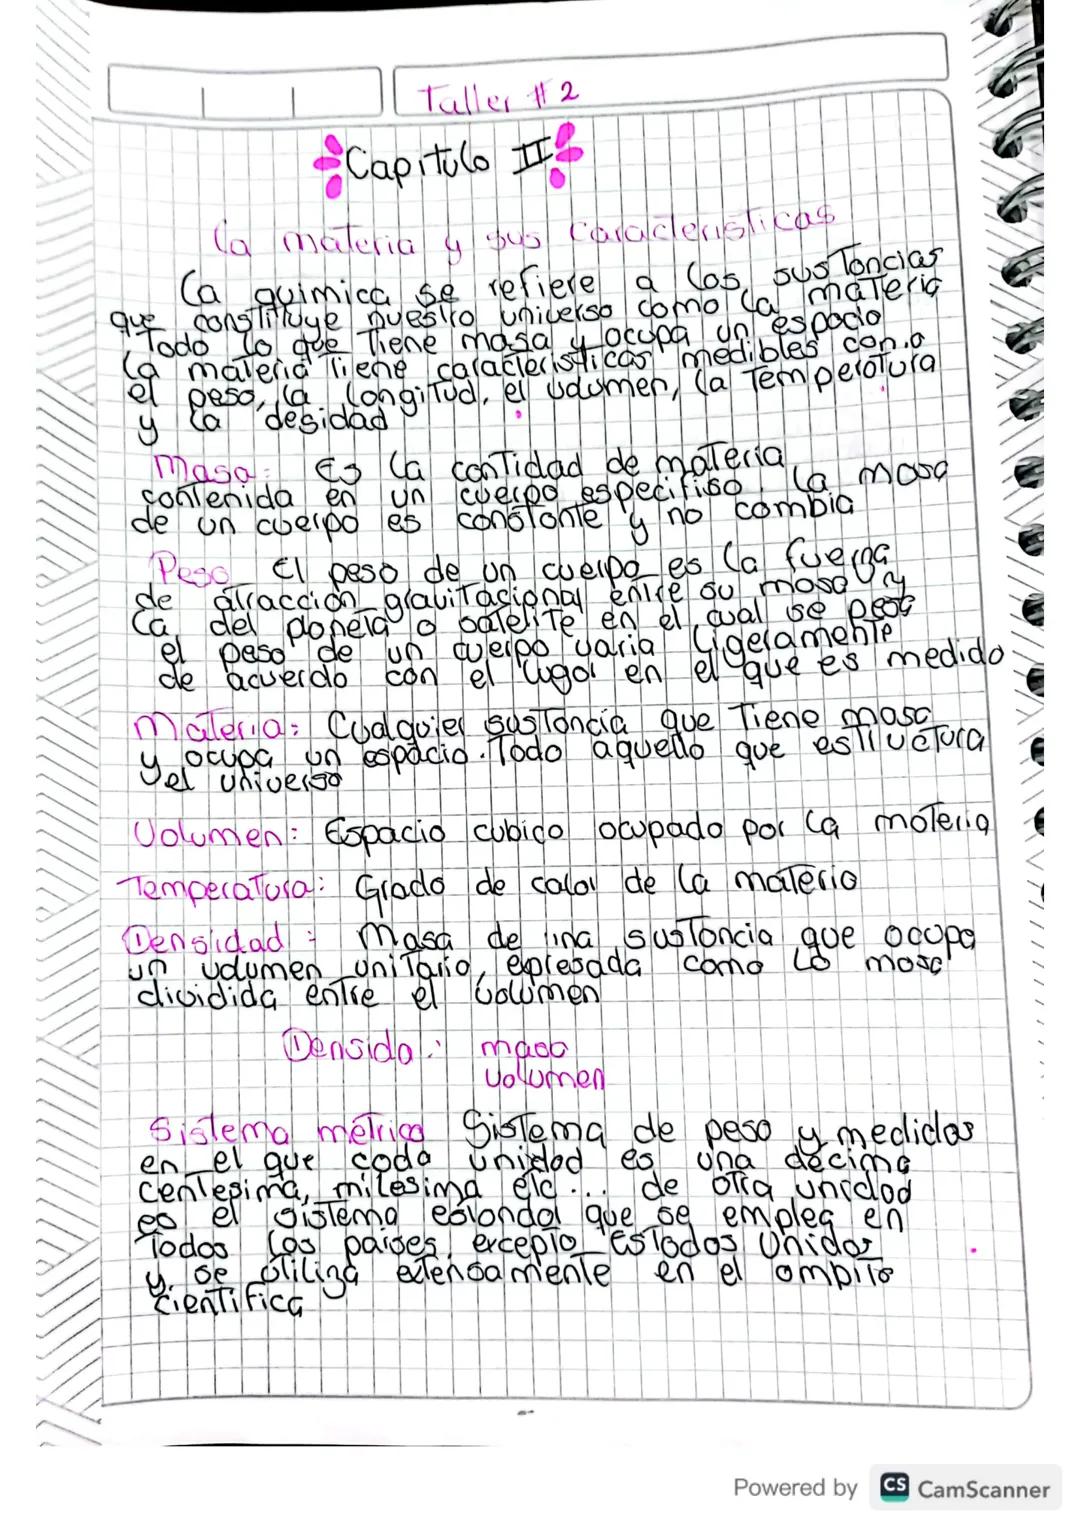 Taller #2
Capitulo II
La materia y sus Caracteristicas
La quimica se refiere a los sustancias
que constituye nuestro universo como la materia
Todo lo que Tiene masa y ocupa un espacio
La materia Tiene caracteristicas medibles con.o
el peso, la longitud, el volumen, la Temperatura
y la desidad
Masa: Es la cantidad de materia
contenida en un cuerpo especifiso. La masa
de un cuerpo es constante y no combia
Peso El peso de un cuerpo es la fuerza
de atraccion gravitacional entre su masa y
la del planeta o satelite en el cual se pesa
el peso de un cuerpo varia ligeramente
de acuerdo con el lugar en el que es medido
Materia: Cualquier sustancia que Tiene masa
y ocupa un espacio. Todo aquello que estructura
el universo
Volumen: Espacio cubico ocupado por la materia
Temperatura: Grado de calor de la materia
Densidad: Masa de una sustancia que ocupa
un volumen unitario, expresada como la masa
dividida entre el volumen
Densida: masa
volumen
Sistema métrico Sistema de peso y medidas
en el que cada unidad es una decima
centesima, milesima etc... de otra unidad
es el sistema estandal que se emplea en
Todos los paises, excepto Estados Unidos
y se utiliza extensamente en el ambito
cientifica
Powered by CS CamScanner